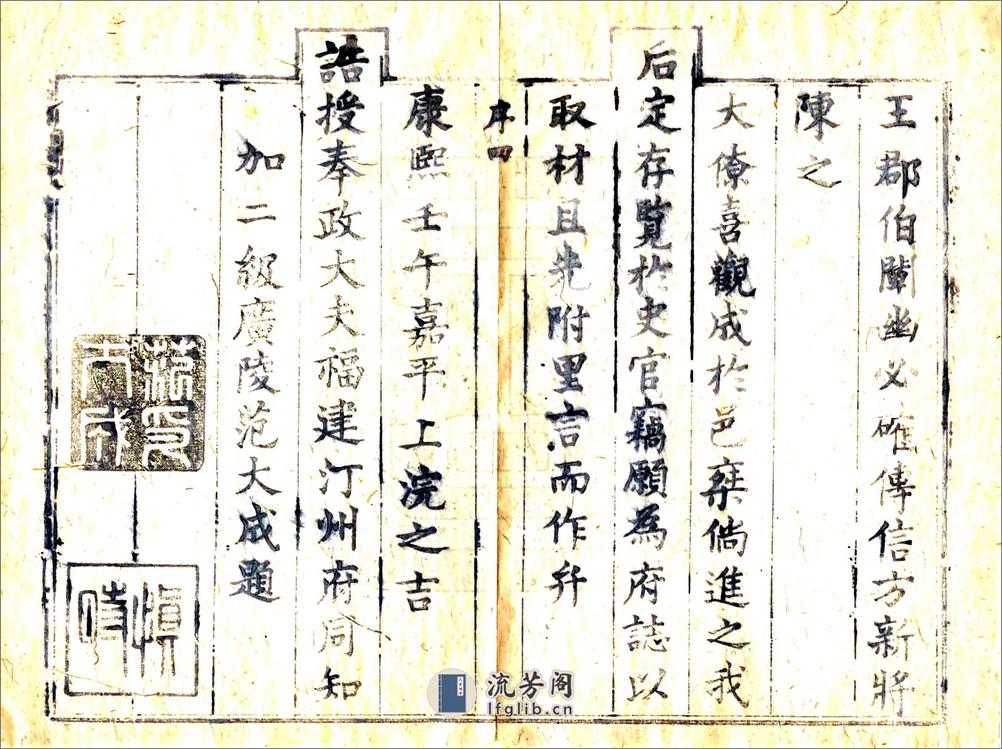 王郡伯闡幽必確傳信方新將
陳之
大僚喜觀成於邑乗倘進之我
后定存覽於史官竊願為府誌以
取材且先附里言而作弁
序四
康熙壬午嘉平上浣之吉
誥授奉政大夫福建汀州府同知
加二級廣陵范大成題
范氏大成
慎時
流芳阁
lfglib.cn